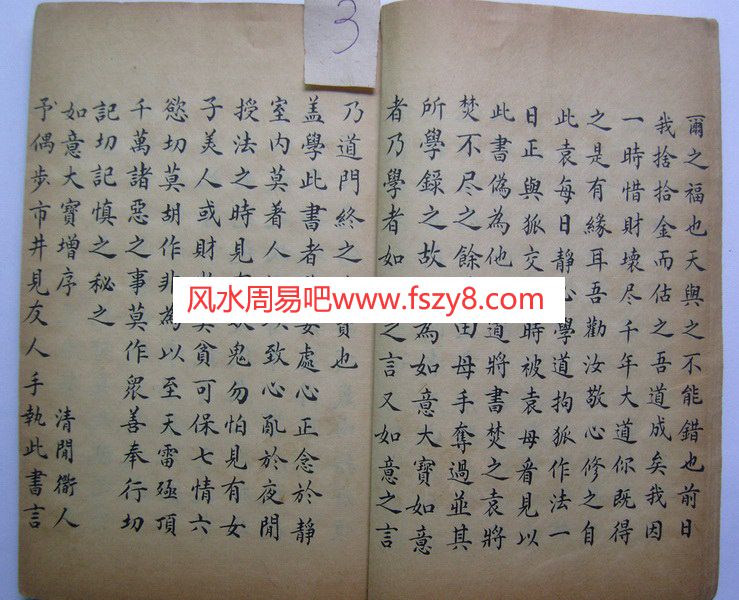 3
爾之福也天與之不能錯也前日
我捨拾金而估之吾道成矣我因
一時惜財壞尽千年大道你既得
之是有緣耳吾勸汝敬心修之自
此袁每日静心學道拘狐作法一
日正與狐交時被袁母看見以
此書偽為他道將書焚之袁將
焚不尽之餘田母手奪過並其
所學錄之故為如意大寶如意
者乃學者如之言又如意之言
乃道門終之寶也
盖學此書者要處心正念於静
室内莫着人以致心亂於夜間
授法之時見鬼勿怕見有女
子美人或財莫貪可保七情六
慾切莫胡作非為以至天雷殛頂
千萬諸惡之事莫作眾善奉行切
記切記慎之秘之
如意大寶增序 清閒衜人
予偶步市井見友人手執此書言
风水周易吧www.fszy8.com